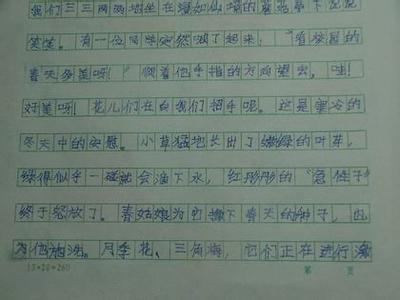 我们三三两两地坐在宛如仙境的花草下说说
笑笑。有一位同学突然喊了起来,“看校园的
春天多美呀!”顺着他手指的方向望去,哇!
好美呀!花儿们在向我们招手呢。这是寒冷的
冬天中的安慰。小草猛地长出了嫩绿的叶芽,
绿得似乎一碰就会滴下水,红彤彤的“急性子”
终于怒放了。春姑娘为它撒下春天的种子,也
为他施洗。月季花、三角梅,它们正在进行
13×20=260 第 页